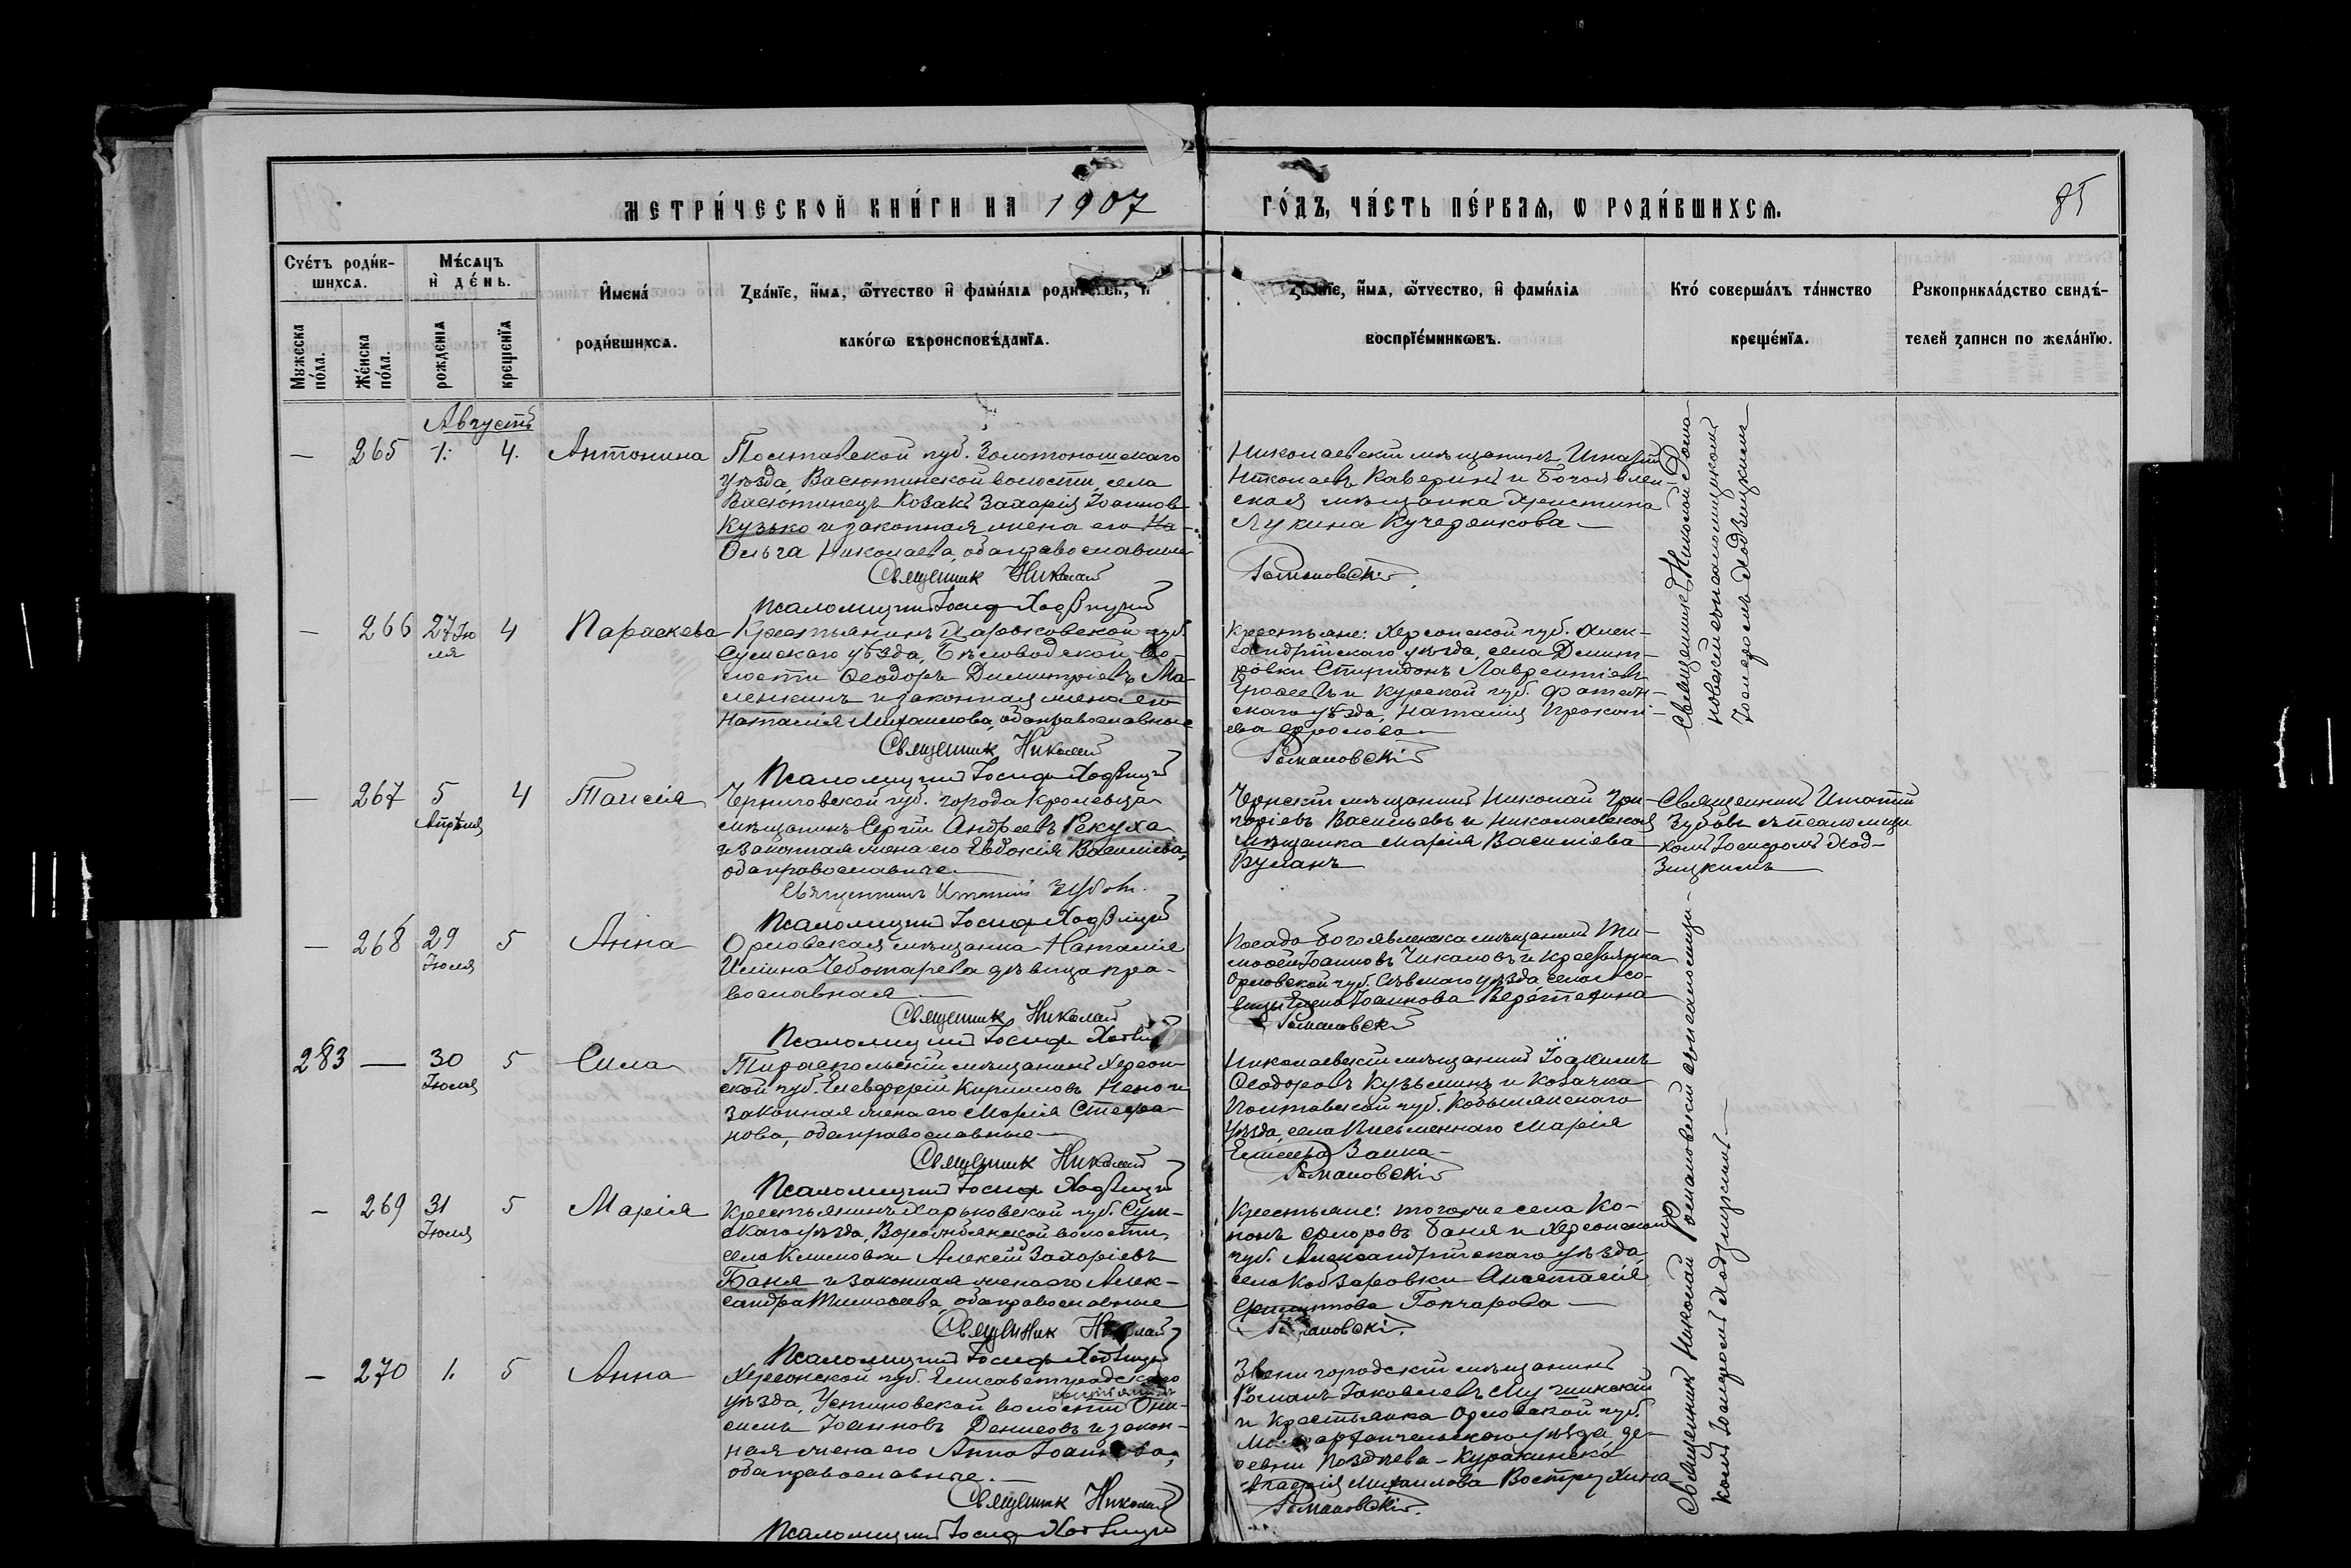 МЕТРИ́ЧЕСКОЙ КНИ́ГИ НА 1907
ГО́ДЪ, ЧА́СТЬ ПЕ́РВАѦ, Ѡ РОДИ́ВШИХСѦ.
85
Сче́тъ роди́в-
шихсѧ.
Мѣ́сѧцъ
и҆ де́нь.
И҆мена́
роди́вшихсѧ.
Зва́нїе, и҆́мѧ, ѻ҆́тчество и҆ фами́лїѧ роди́телей, и҆
како́гѡ вѣроисповѣ́данїѧ.
Зва́нїе, и҆́мѧ, ѻ҆́тчество, и҆ фами́лїѧ
воспрїе́мникѡвъ.
Кто́ соверша́лъ та́инство
креще́нїѧ.
Рꙋкоприкла́дство свидѣ́-
телей записи по жела́нїю.
Мꙋжеска
по́ла.
Же́нска
по́ла.
рожденїѧ
крещенїѧ
Августъ
— 265 1. 4. Антонина
Полтавской губ. Золотоношскаго
уѣзда, Васютинской волости, села
Васютинецъ Козакъ Захарія Іоаннов
Кузько и законная жена его На-
Ольга Николаева, оба православные
Священник Николай
Псаломщикъ Іосиф Ходзицкій
Николаевскій мѣщанинъ Игнатій
Николаевъ Каверинъ и Богоявлен-
ская мѣщанка Христина
Лукина Кучеренкова —
Романовскій
Священникъ Николай Рома-
новскій съ псаломщикомъ
Іосифомъ Ходзицкимъ
— 266 27 Ію
ля 4 Параскева
Крестьянинъ Харьковской губ.
Сумскаго уѣзда, Бѣловодской во-
лости Ѳеодоръ Димитріевъ Ма-
ленкинъ и законная жена его
Наталія Михаилова, оба православные
Священник Николай
Псаломщикъ Іосиф Ходзицкій
Крестьяне: Херсонской губ. Алек-
сандрійскаго уѣзда, села Дмит-
ровки Спиридонъ Лаврентіевъ
и Курской губ. Фатеж-
скаго уѣзда, Наталія Прокопі-
ева Фролова —
Романовскій
— 267 5
Апрѣля 4 Таисія
Черниговской губ. города Кролевца
мѣщанинъ Сергій Андреевъ Рекуха
и законная жена его Евдокія Василіева,
оба православные. —
Священникъ Игнатій Зубовъ.
Псаломщикъ Іосиф Ходзицкій
мѣщанинъ Николай Гри-
горіевъ Васильевъ и Николаевская
мѣщанка Марія Василіева
Буланъ
Священникъ Игнатій
Зубовъ съ псаломщи
комъ Іосифомъ Ход-
зицкимъ
— 268 29
Іюля 5 Анна
Орловская мѣщанка Наталія
Иліина Чеботарева дѣвица пра-
вославная —
Священник Николай
Псаломщикъ Іосиф Ходзицкій
Посада Богоявленска мѣщанинъ Ти-
моѳей Іоанновъ Чикаловъ и крестьянка
Орловской губ. Сѣвскаго уѣзда села
Елена Іоаннова Веретехина
Романовскій
283 — 30
Іюля 5 Сила
Тираспольскій мѣщанинъ Херсон-
ской губ. Елевферій Кирилловъ и
законная жена его Марія Стефа-
нова, оба православные —
Священник Николай
Псаломщикъ Іосиф Ходзицкій
Николаевскій мѣщанинъ Іоакимъ
Ѳеодоровъ Кузьминъ и козачка
Полтавской губ. Кобылякскаго
уѣзда, села Письменнаго Марія
Заика —
Романовскій
— 269 31
Іюля 5 Марія
Крестьянинъ Харьковской губ. Сум-
скаго уѣзда, Ворожбянской волости,
села Климовки Алексій Захаріевъ
Баня и законная жена его Алек-
сандра Тимоѳеева, оба православные
Священник Николай
Псаломщикъ Іосиф Ходзицкій
Крестьяне: того же села Ко-
нонъ Флоровъ Баня и Херсонской
губ. Александрійскаго уѣзда,
села Кобзаровки Анастасія
Филиппова Гончарова —
Романовскій
— 270 1. 5 Анна
Херсонской губ. Елисаветградскаго
уѣзда, Устиновской волости крестьянинъ Они-
симъ Іоанновъ Денисовъ и закон-
ная жена его Анна Іоаннова,
оба православные. —
Священник Николай
Псаломщикъ Іосиф Ходзицкій
Звенигородскій мѣщанинъ
Романъ Іаковлевъ
и крестьянка Орловской губ.
Малоархангельскаго уѣзда, де-
ревни Позднева-Куракинска
Агафія Михаилова Вострухина
Романовскій
Священникъ Николай Романовскій съ псаломщи-
комъ Іосифомъ Ходзицкимъ —